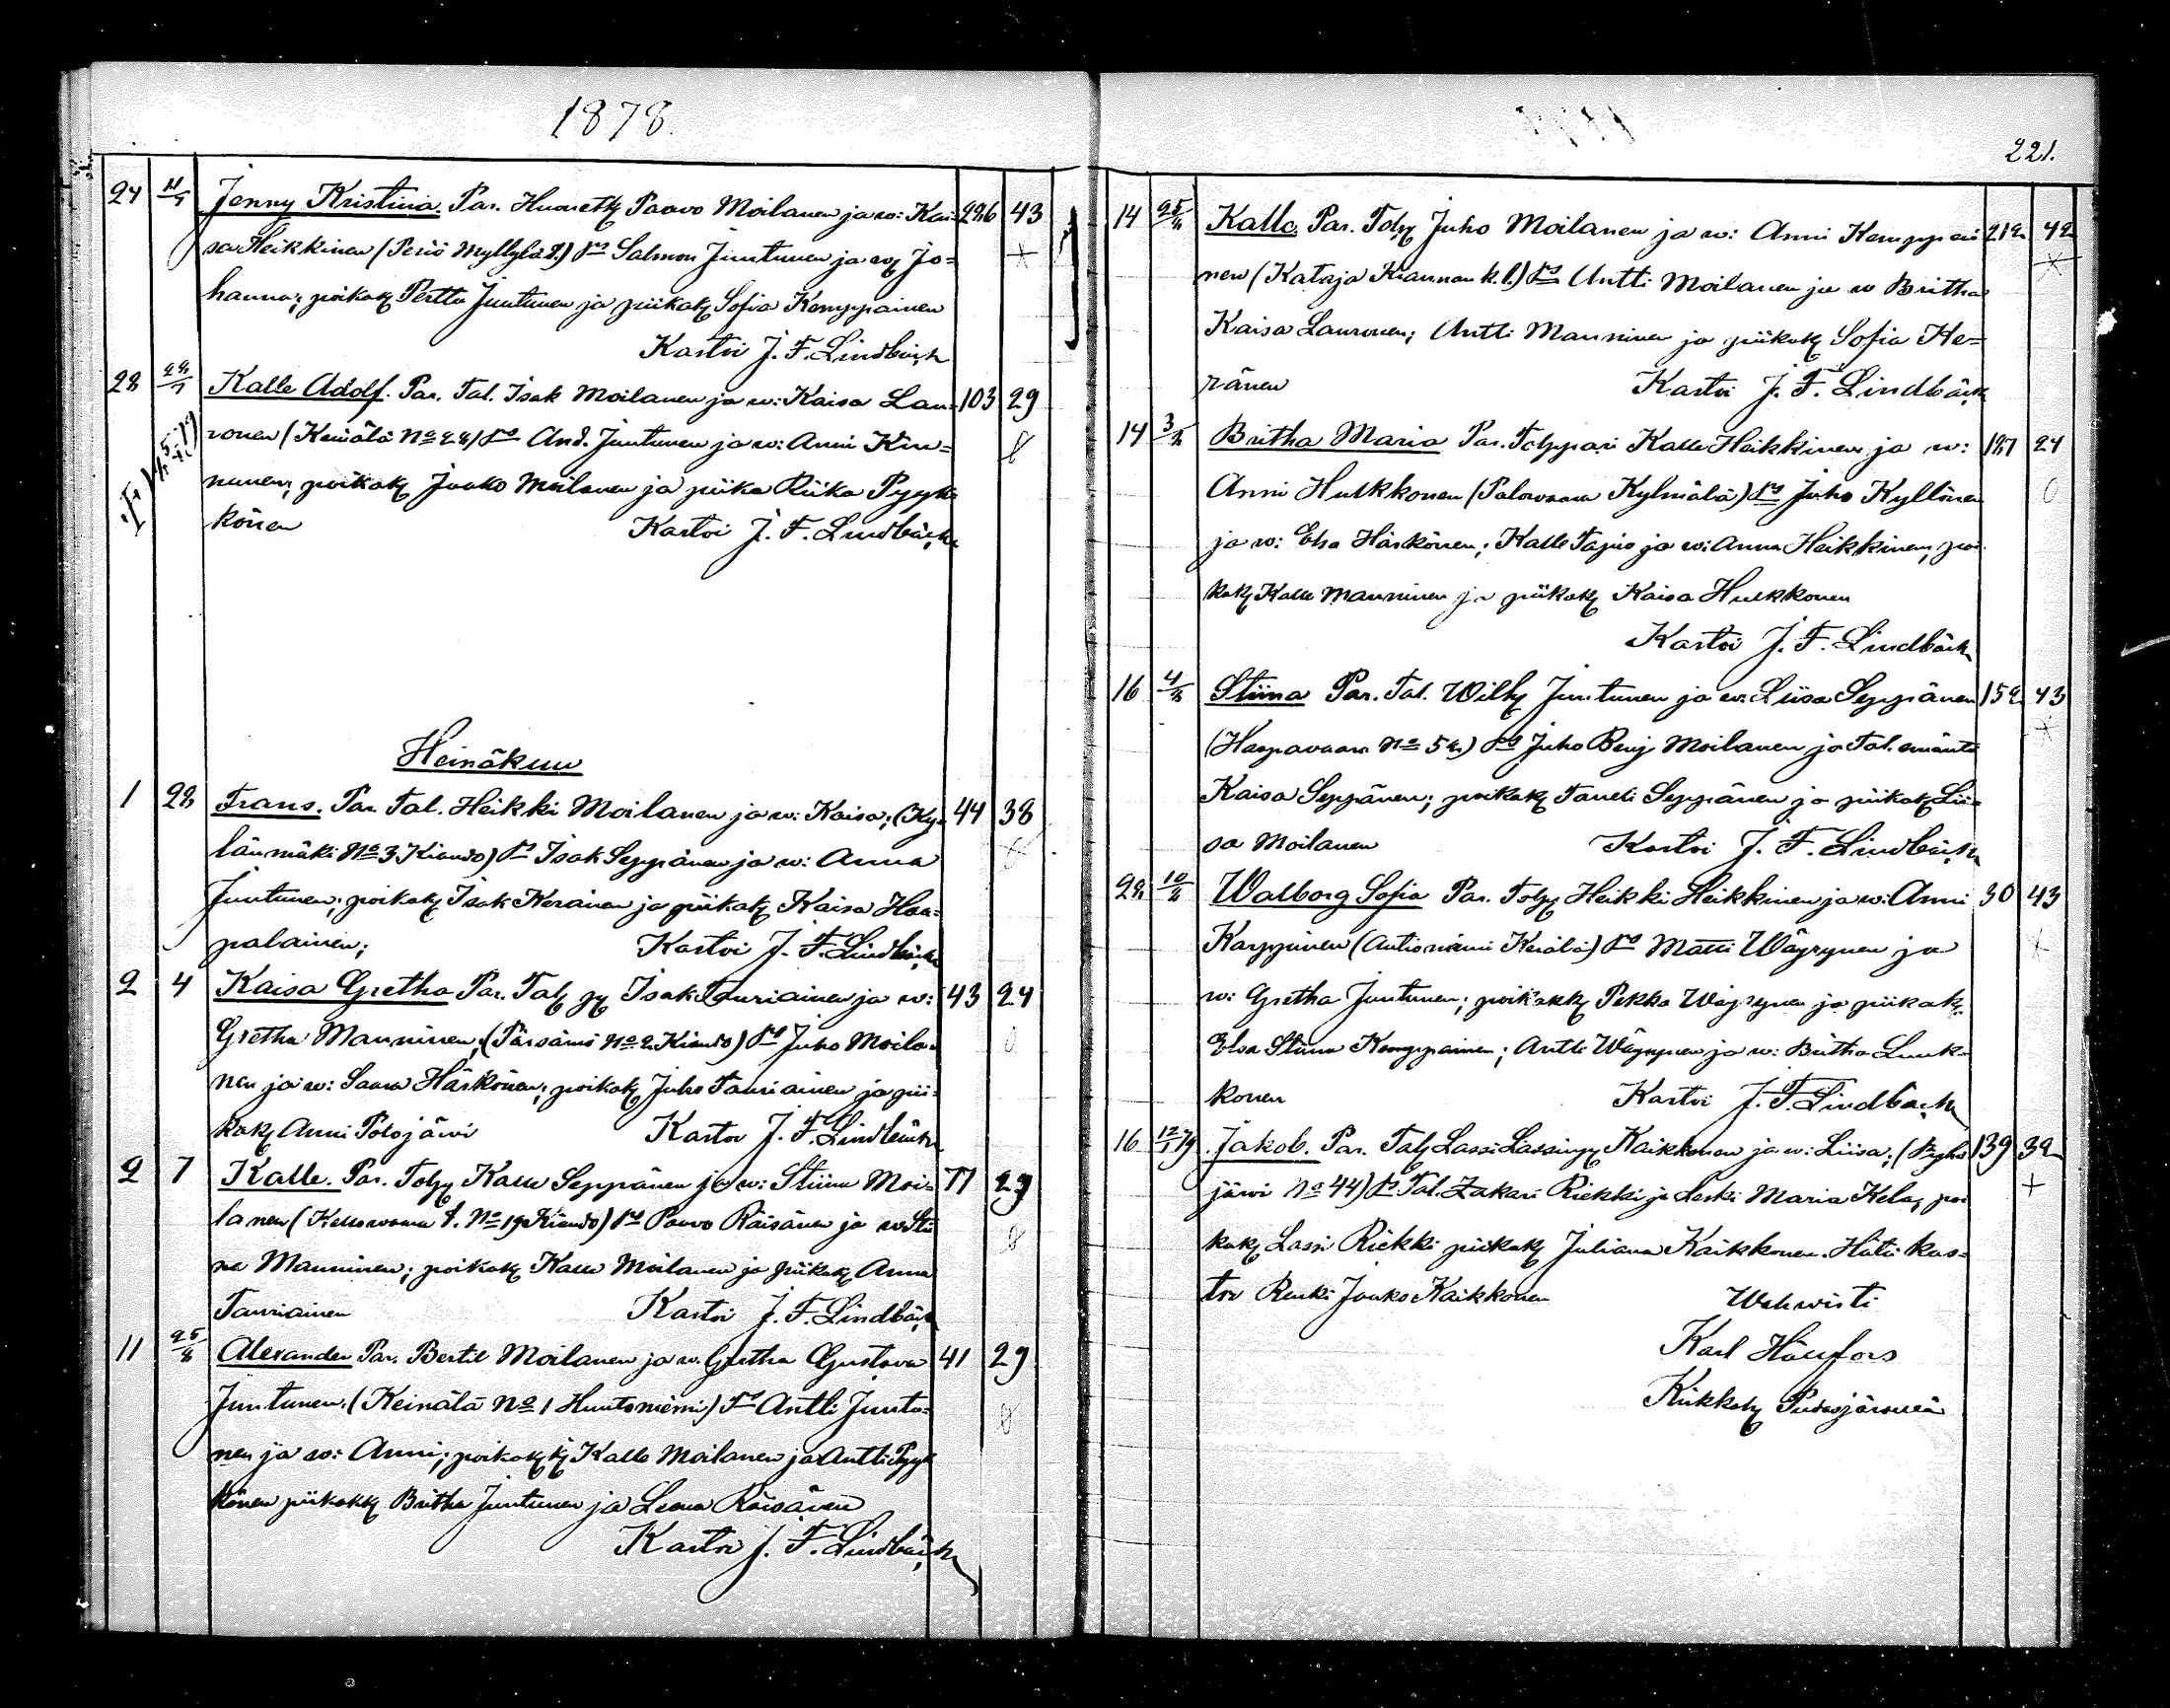 1878.
24 11/7 Jenny Kristina. Par. Huonetk Paavo Moilanen ja w: Kai- 226 43
sa Heikkinen (Periö Myllylä t.) Salmon Juntunen ja w Jo-
hanna; poikak Pertta Juntunen ja piikak Sofia Kemppainen
Kastoi J. F. Lindbäck
28 22/7 Kalle Adolf. Par. Tal. Isak Moilanen ja w: Kaisa Lau- 103 29
ronen (Keinälä No 22) And. Juntunen ja w: Anni Kin-
nunen; poikak Jaako Moilanen ja piika Riika Pyyk-
könen Kastoi J. F. Lindbäck
Heinäkuu
1 28 Frans. Par. Tal. Heikki Moilanen ja w: Kaisa; (Ky- 44 38
länmäki No 3 Kianto) Isak Seppänen ja w: Anna
Juntunen; poikak Isak Keränen ja piikak Kaisa Haa-
palainen; Kastoi J. F. Lindbäck
2 4 Kaisa Gretha Par. Talk Isak Tauriainen ja w: 43 24
Gretha Manninen; (Pärsämö No 2 Kianto) Juho Moila-
nen ja w: Saara Härkönen; poikak Juho Tauriainen ja pii-
kak Anni Polojärvi Kastoi J. F. Lindbäck
2 7 Kalle. Par. Tolp Kalle Seppänen ja w: Stiina Moi- 77 29
lanen (Kellowaara t. No 19 Kianto) Paavo Räisänen ja w Sti-
na Manninen; poikak Kalle Moilanen ja piikak Anna
Tauriainen Kastoi J. F. Lindbäck
11 25/8 Alexander Par. Bertil Moilanen ja w. Gretha Gustava 41 29
Juntunen. (Keinälä No 1 Huutoniemi) Antti Juntu-
nen ja w: Anni; poikakk Kalle Moilanen ja Antti Pyyk-
könen piikakk Britha Juntunen ja Leena Räisänen
Kastoi J. F. Lindbäck
221.
14 25/8 Kalle. Par. Tolp Juho Moilanen ja w: Anni Kemppai- 212 42
nen (Kataja Kiannan k. l.) Antti Moilanen ja w Britha
Kaisa Lauronen; Antti Manninen ja piikak Sofia He-
ränen Kastoi J. F. Lindbäck
14 3/8 Britha Maria Par. Tolppari Kalle Heikkinen ja w: 127 24
Anni Hulkkonen (Palovaara Kylmälä) Juho Kyllönen
ja w: Elsa Härkönen; Kalle Tapio ja w: Anna Heikkinen, poi-
kak Kalle Manninen ja piikak Kaisa Hulkkonen
Kastoi J. F. Lindbäck
16 4/8 Stiina Par. Tal. Wilh Juntunen ja w: Liisa Seppänen 152 43
(Haapavaara No 52) Juho Benj Moilanen ja Tal. emäntä
Kaisa Seppänen; poikak Taneli Seppänen ja piikak Lii-
sa Moilanen Kastoi J. F. Lindbäck
22 10/8 Walborg Sofia Par. Tolp Heikki Heikkinen ja w: Anni 30 43
Karppinen (Antioniemi Keinälä) Matti Wäyrynen ja
w: Gretha Juntunen; poikakk Pekka Wäyrynen ja piikak
Elsa Stiina Kemppainen; Antti Wäyrynen ja w: Britha Luuk-
konen Kastoi J. F. Lindbäck
16 12/1 79 Jakob. Par. Talk Lassi Kaikkonen ja w: Liisa; (Pyhä- 139 32
järvi No 44) Tal. Zakari Riekki ja Leski Maria Kela, poi-
kak Lassi Riekki piikak Juliana Kaikkonen. Hätä kas-
toi Renki Jaako Kaikkonen Wahvisti
Karl
Kirkkoh Pudasjärvellä